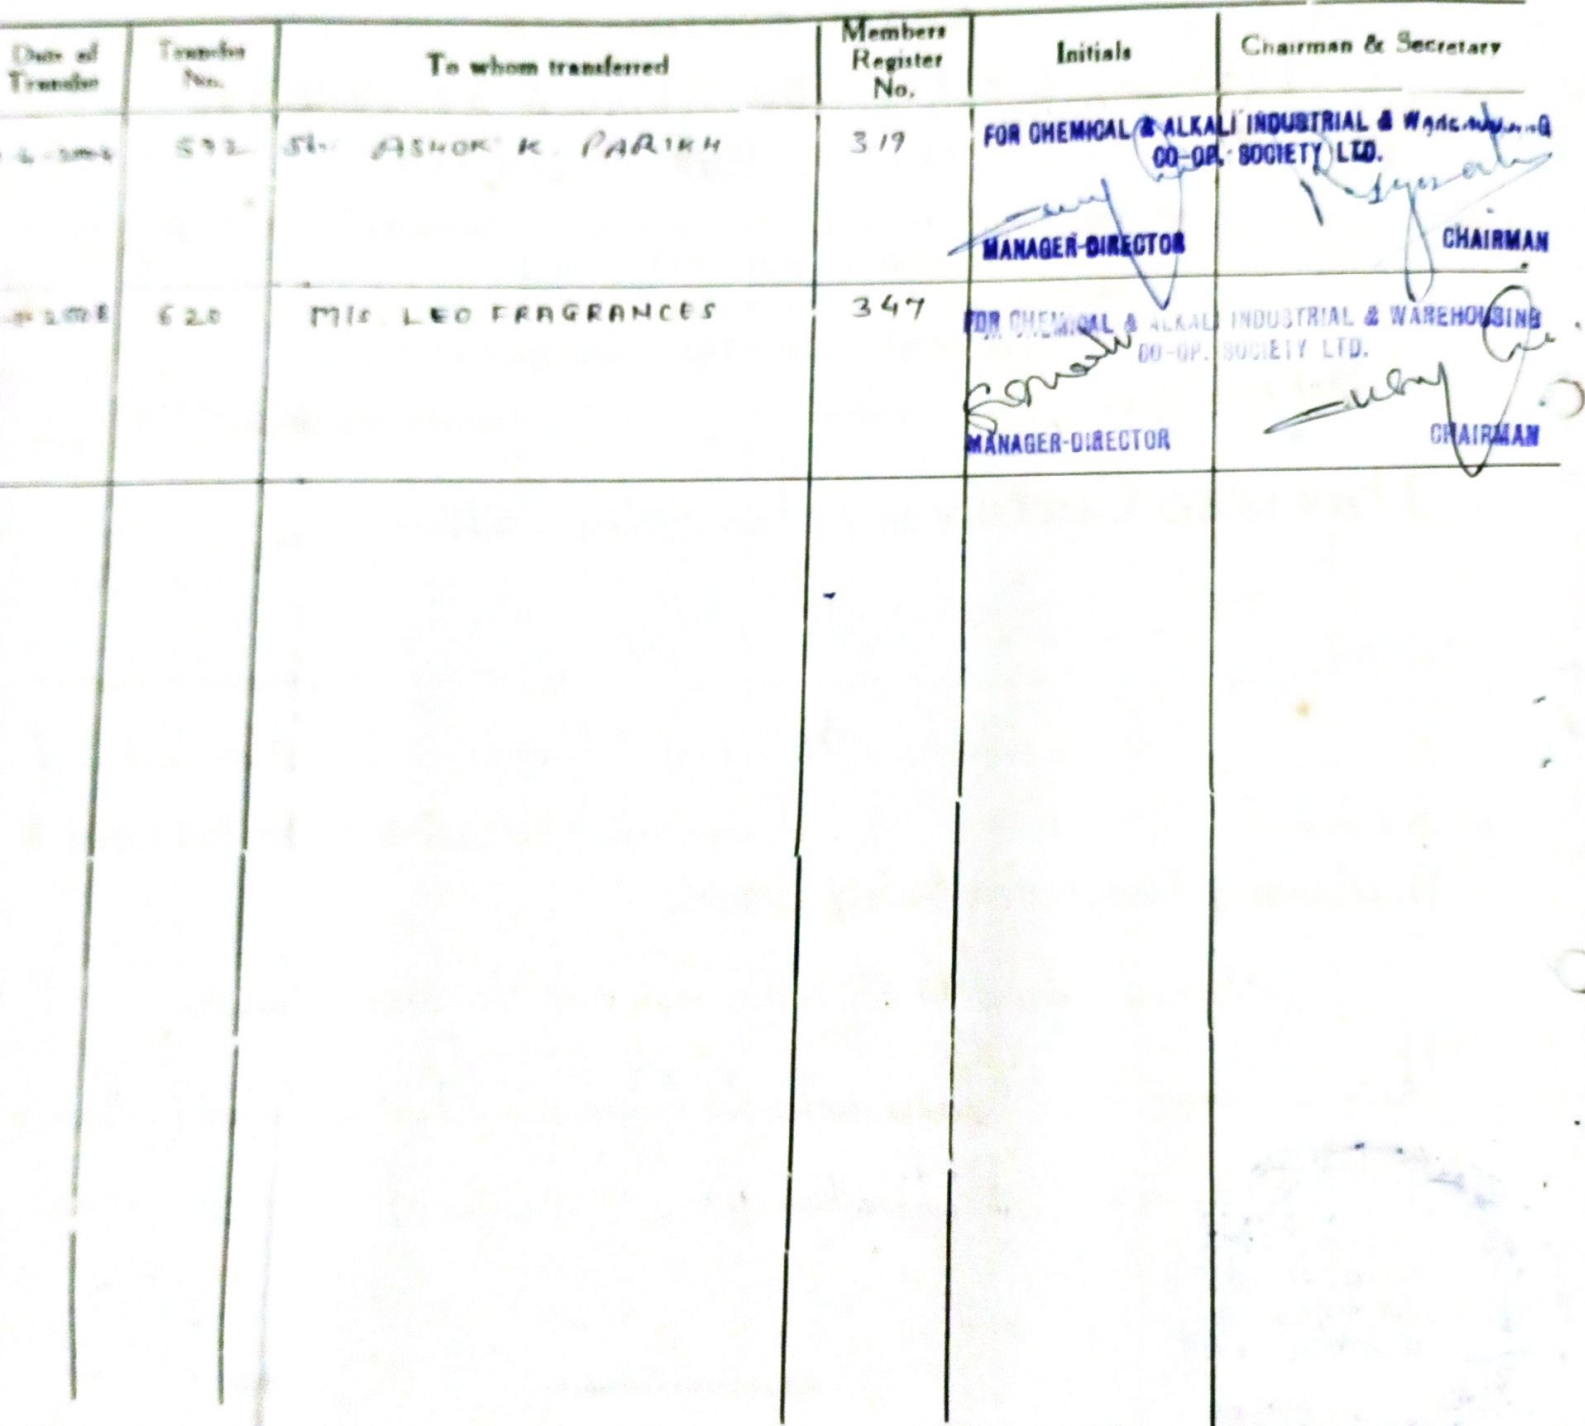 Date of Transfer
Transfer No.
To whom transferred
Members Register No.
Initials
Chairman & Secretary
592 Sh. ASHOK K. PARIKH 319
FOR CHEMICAL & ALKALI INDUSTRIAL &
CO-OP. SOCIETY LTD.
MANAGER-DIRECTOR
CHAIRMAN
2008 620 M/s. LEO FRAGRANCES 347
FOR CHEMICAL & ALKALI INDUSTRIAL & WAREHOUSING
CO-OP. SOCIETY LTD.
MANAGER-DIRECTOR
CHAIRMAN